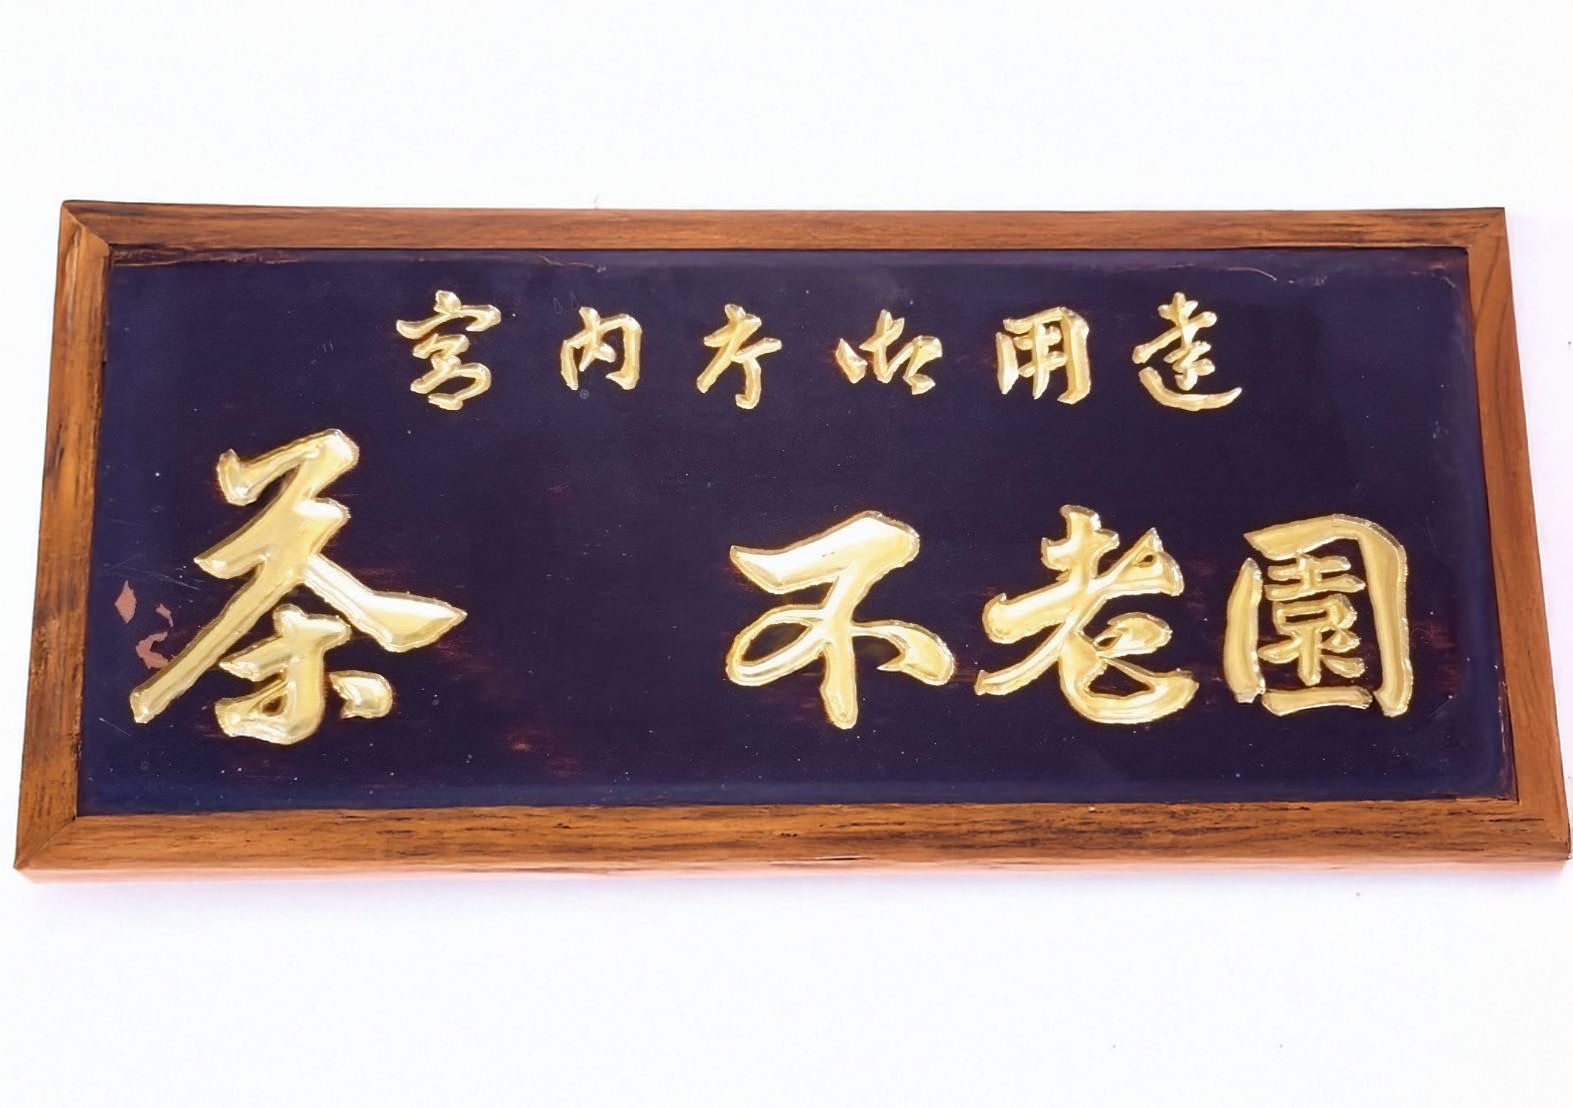 宮内庁御用達
茶 不老園